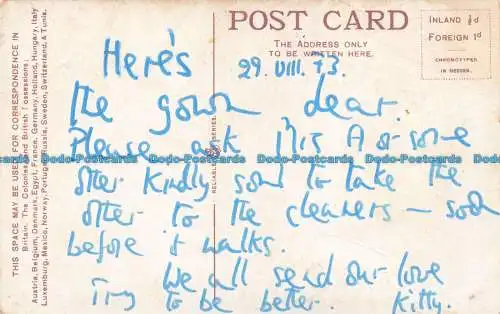 POST CARD
THE ADDRESS ONLY
TO BE WRITTEN HERE.
INLAND ½d
FOREIGN 1d
CHROMOTYPED
IN SAXONY.
THIS SPACE MAY BE USED FOR CORRESPONDENCE IN
Britain, The Colonies and British Possessions,
Austria, Belgium, Denmark, Egypt, France, Germany, Holland, Hungary, Italy
Luxemburg, Mexico, Norway, Portugal, Russia, Sweden, Switzerland, & Tunis.
RELIABLE SERIES.
Here's 29.VIII.73.
the gown dear.
Please ask Mrs A or some
other kindly soul to take the
otter to the cleaners — soon
before it walks.
We all send our love
Try to be better. Kitty.
Dodo-Postcards Dodo-Postcards Dodo-Postcards Dodo-Postcards